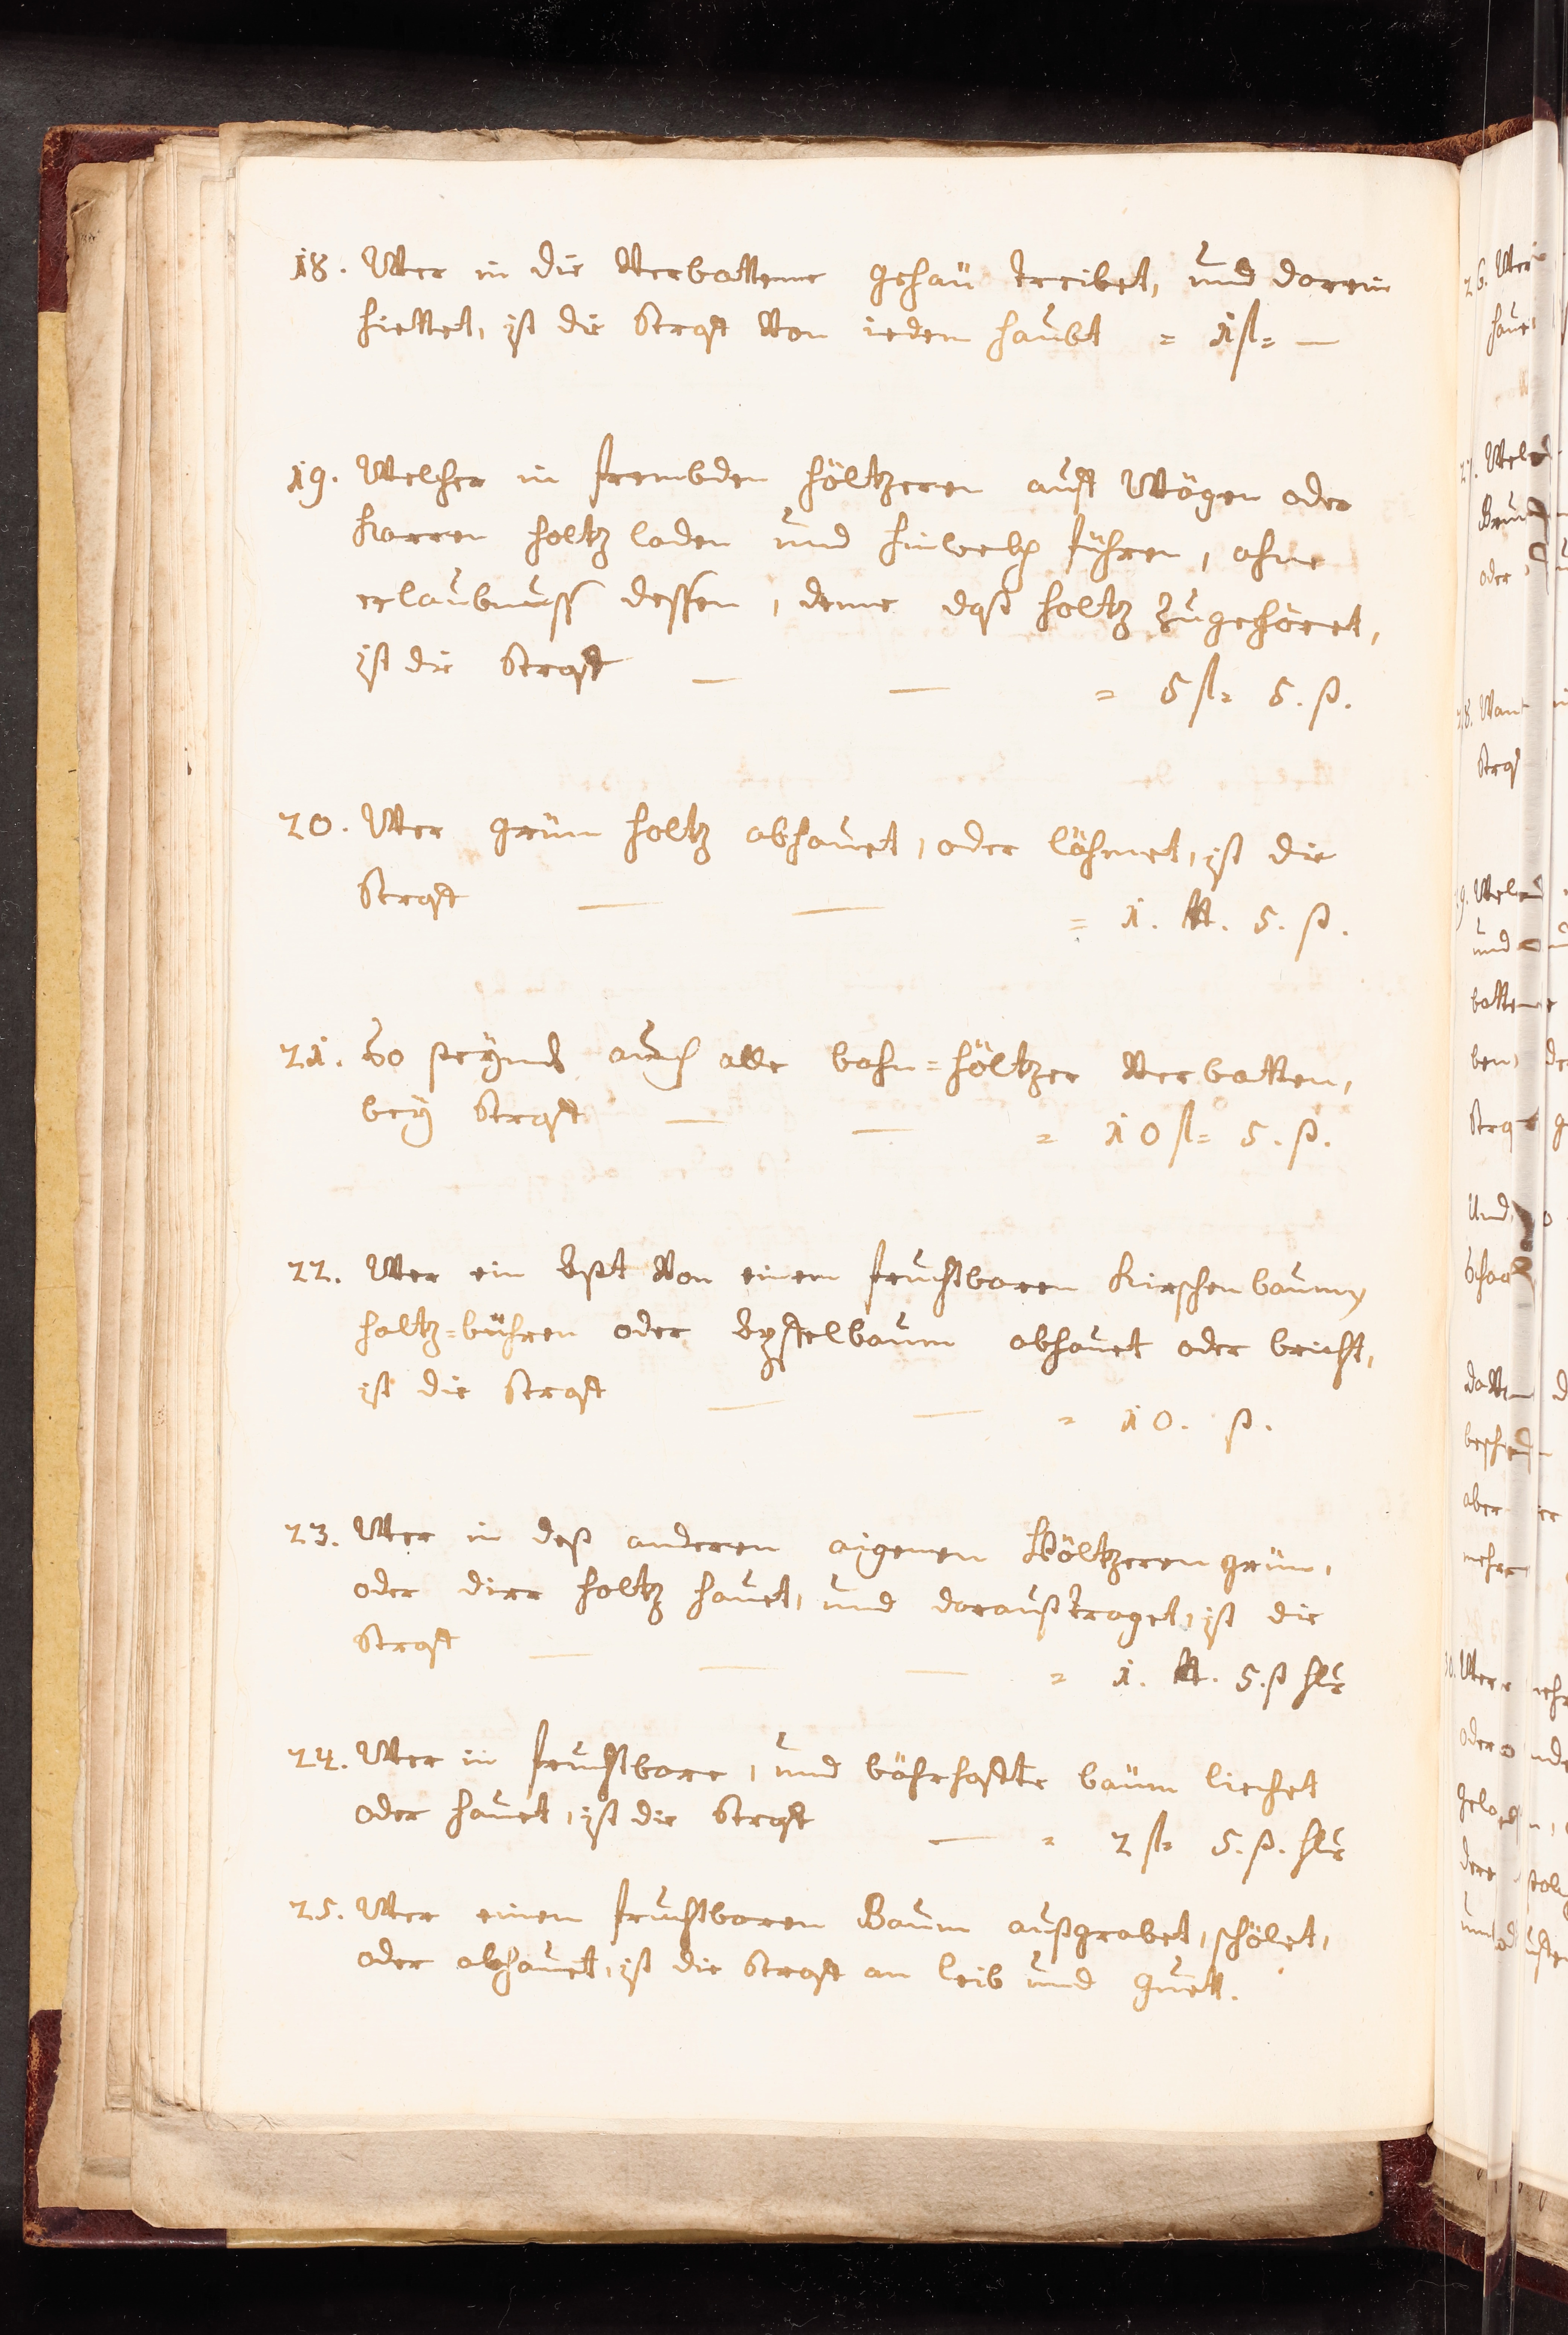 18. Wer in die Verbottene gehaü treibet, und darein
hiettet, ist die Straff Von ieden haubt = 1 fl= —
19. Welcher in frembden höltzeren auff Wögen oder
Karren holtz laden und hinwekh führen, ohne
erlaubnuss dessen, deme daß holtz zugehöret,
ist die Straff — — = 5 fl= 5. ß.
20. Wer grüen holtz abhauet, oder löhmet, ist die
Straff — — = 1. ℔. 5. ß.
21. So seynd auch alle bahn=höltzer Verbotten,
bey Straff — — = 10 fl= 5. ß.
22. Wer ein Ast Von einem fruchtbaren Kirschenbaum,
holtz=bühren oder Apffelbaum abhauet oder bricht,
ist die Straff — — = 10. ß.
23. Wer in deß anderen aigenen Höltzeren grüen,
oder dirr holtz hauet, und darauß traget, ist die
Straff — — — = 1. ℔. 5. ß hlr
24. Wer in fruchtbare, und böhrhaffte baüm liechet
oder hauet, ist die Straff — = 2 fl= 5. ß. hlr
25. Wer einen fruchtbaren Baum außgrabet, schölet,
oder abhauet, ist die Straff an leib und guett.
26. Wer
haue
oder
28. Wan
Straf
und
Und
aber
mehr
oder